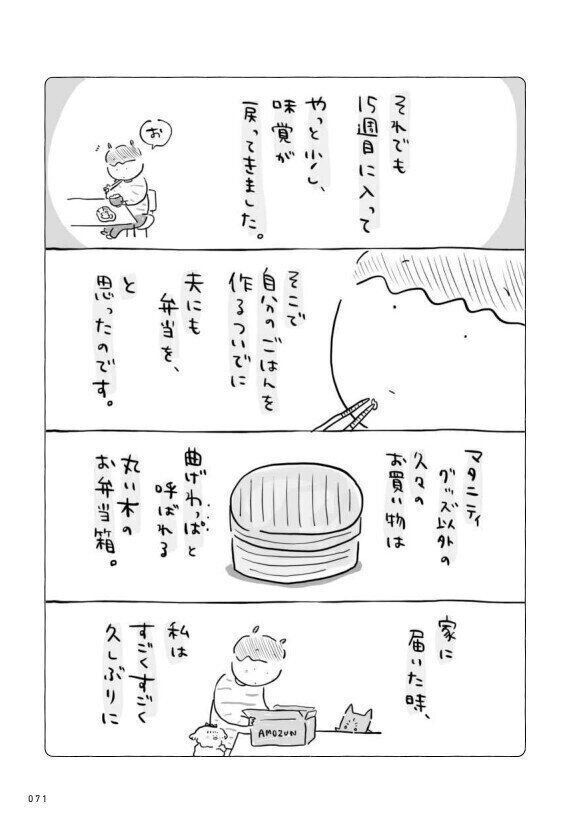 それでも
15週目に入って
やっと少し、
味覚が
戻ってきました。
お
そこで
自分のごはんを
作るついでに
夫にも
弁当を、
と
思ったのです。
マタニティ
グッズ以外の
久々の
お買い物は
曲げわっぱと
呼ばれる
丸い木の
お弁当箱。
家に
届いた時、
私は
すごくすごく
久しぶりに
AMOZUN
071